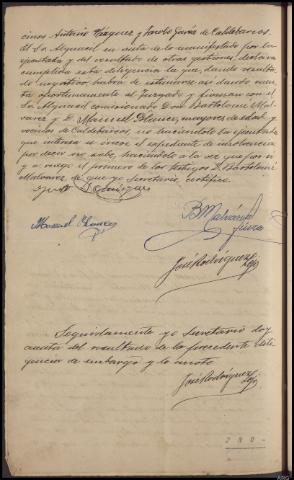 cinos Antonio Vázquez y Jacobo García de Caldebarcos.
El Sr Alguacil en vista de lo manifestado por la
ejecutada y del resultado de otras gestiones, declara
cumplida esta diligencia la que, dando resulta-
do negativo habrá de estimarse así dando cuen-
ta oportunamente al Juzgado y firman con el
Sr Alguacil comisionado Don Bartolomé Mal-
varez y D. Manuel Blanco, mayores de edad y
vecinos de Caldebarcos, no haciéndolo la ejecutada
que interesa se incoe el expediente de insolvencia
por decir no sabe, haciéndolo a la vez que por sí
y a ruego el primero de los testigos D. Bartolomé
Malvarez de que yo Secretario, certifico.
Domínguez
Manuel Blanco
B Malvárez
José Rodríguez
Seguidamente yo Secretario doy
cuenta del resultado de la precedente dili-
gencia de embargo y lo anoto
José Rodríguez
280-